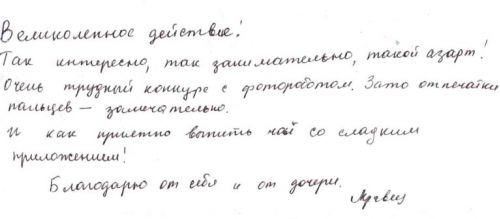 Великолепное действие!
Так интересно, так занимательно, такой азарт!
Очень трудный конкурс с фотороботом. Зато отпечатки
пальцев – замечательно.
И как приятно выпить чай со сладким
приложением!
Благодарю от себя и от дочери.